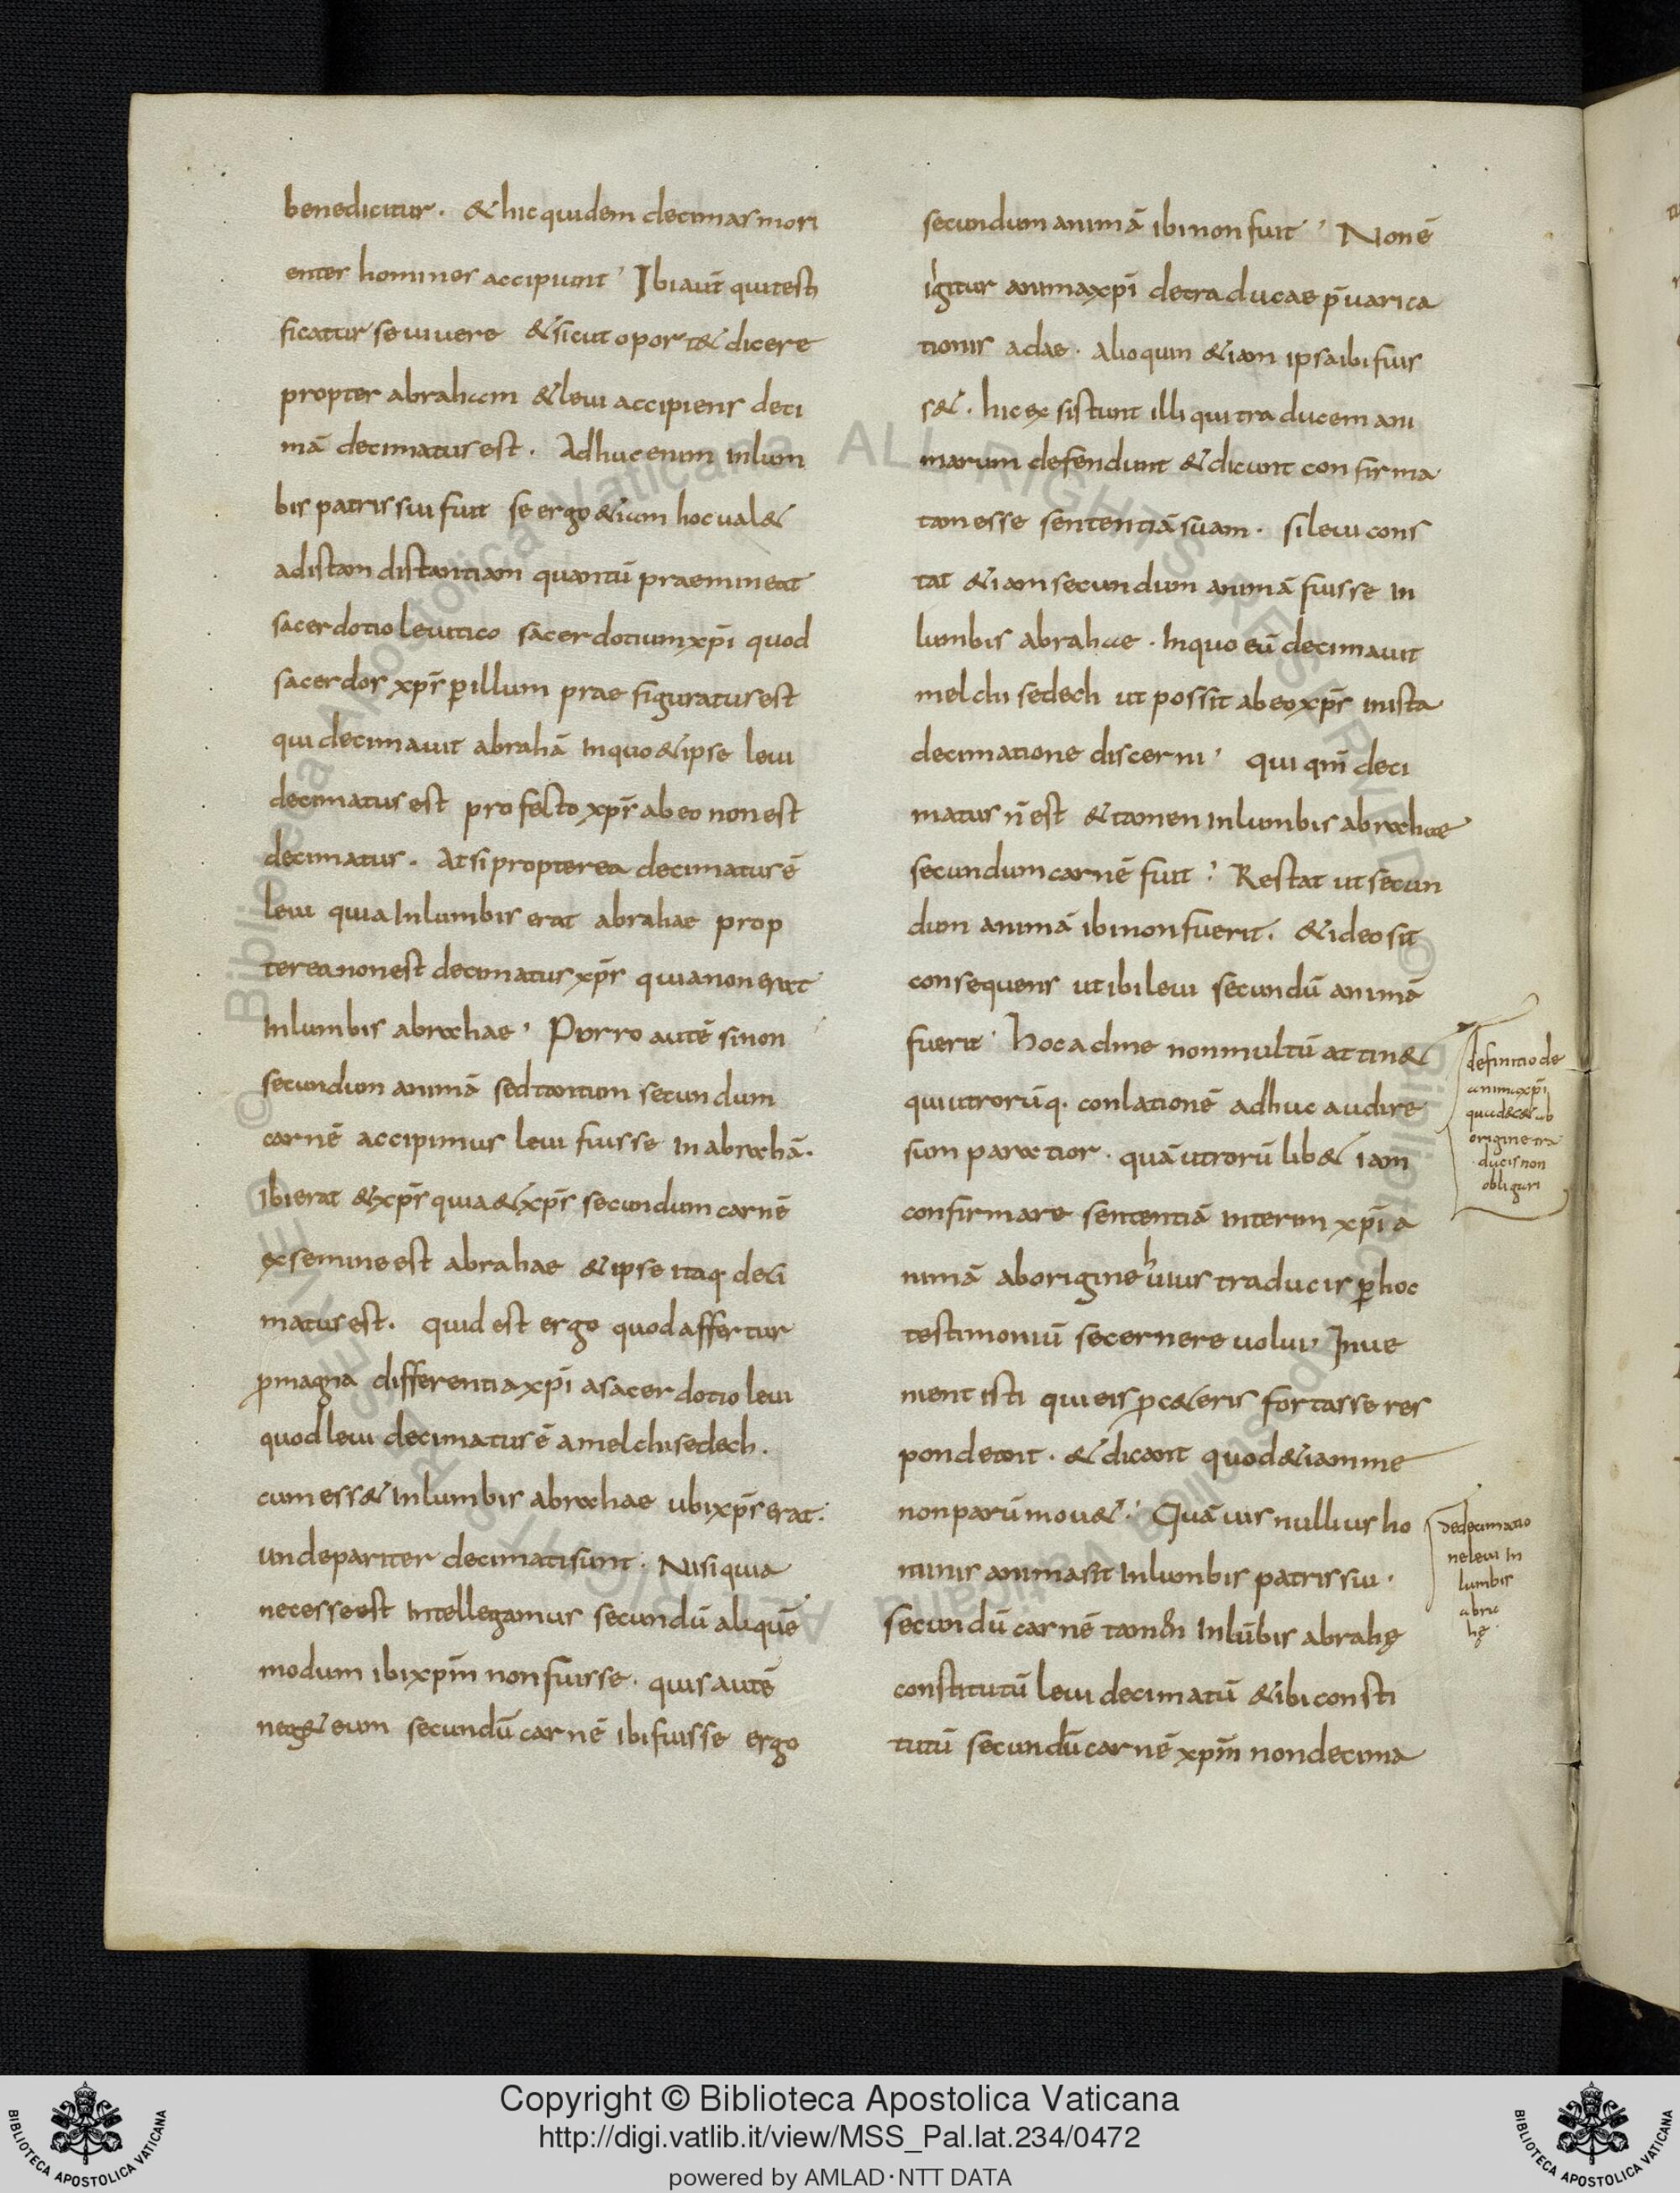 benedicitur. & hic quidem decimas mori
entes homines accipiunt' Ibi aut̄ qui testi
ficatur se uiuere & sicut oport& dicere
propter abraham & leui accipiens deci
mā decimatus est. Adhuc enim in lum
bis patris sui fuit se ergo &iam hoc ual&
ad istam distantiam quantū praemineat
sacerdotio leuitico sacerdotium xp̄i quod
sacerdos xp̄s p̄ illum praefiguratus est
qui decimauit abrahā in quo & ipse leui
decimatus est profecto xp̄s ab eo non est
decimatus. At si propterea decimatus ē
leui quia in lumbis erat abrahae prop
terea non est decimatus xp̄s quia non erat
in lumbis abrahae' Porro autē si non
secundum animā sed tantum secundum
carnē accipimus leui fuisse in abrahā.
ibi erat & xp̄s quia & xp̄s secundum carnē
ex semine est abrahae & ipse itaq. deci
matus est. quid est ergo quod affertur
p̄ magna differentia xp̄i a sacerdotio leui
quod leui decimatus ē a melchisedech.
cum ess& in lumbis abrahae ubi xp̄s erat.
unde pariter decimati sunt. Nisi quia
necesse est intellegamus secundū aliquē
modum ibi xp̄m non fuisse. quis autē
neg& eum secundū carnē ibi fuisse ergo
secundum animā ibi non fuit' Non ē
igitur anima xp̄i de traducae p̄uarica
tionis adae. alioquin &iam ipsa ibi fuis
s&. hic exsistunt illi qui traducem ani
marum defendunt & dicunt confirma
tam esse sententiā suam. si leui cons
tat &iam secundum animā fuisse in
lumbis abrahae. In quo eū decimauit
melchisedech ut possit ab eo xp̄s in ista
decimatione discerni' qui qm̄ deci
matus n̄ est & tamen in lumbis abrahae
secundum carnē fuit' Restat ut secun
dum animā ibi non fuerit. & ideo sit
consequens ut ibi leui secundū animā
fuerit' hoc ad me non multū attin&
qui utrorūq. conlationē adhuc audire
sum paratior. quā utrorū lib& iam
confirmare sententiā interim xp̄i a
nimā ab origine huius traducis p̄ hoc
testimoniū secernere uolui' Inue
nient isti qui eis p̄ c&eris fortasse res
pondeant. & dicant quod &iam me
non parū mou&' Quāuis nullius ho
minis anima sit in lumbis patris sui.
secundū carnē tamen in lūbis abrahę
constitutū leui decimatū & ibi consti
tutū secundū carnē xp̄m non decima
definitio de
anima xp̄i
origine tra
ducis non
obligari
de decimatio
ne leui in
lumbis
abra
hę
Copyright © Biblioteca Apostolica Vaticana
http://digi.vatlib.it/view/MSS_Pal.lat.234/0472
powered by AMLAD·NTT DATA
BIBLIOTECA APOSTOLICA VATICANA
BIBLIOTECA APOSTOLICA VATICANA